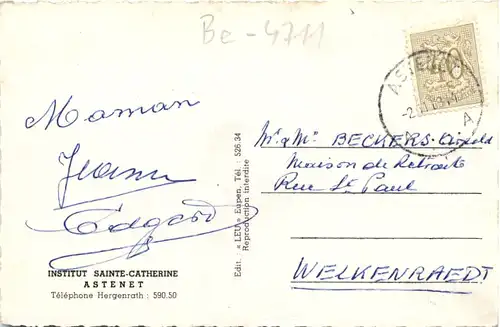 Be-4711
40
ASTENET
A
Maman
Edgard
Mr & Me BECKERS-
Maison de Retraite
Rue St Paul
WELKENRAEDT
INSTITUT SAINTE-CATHERINE
ASTENET
Téléphone Hergenrath : 590.50
Edit. « LEU » Eupen, Tél. : 526.34
Reproduction interdite